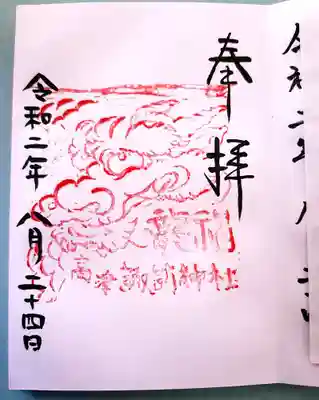 令和二年 八
奉拝
諏訪神社
令和二年 八月 二十四日